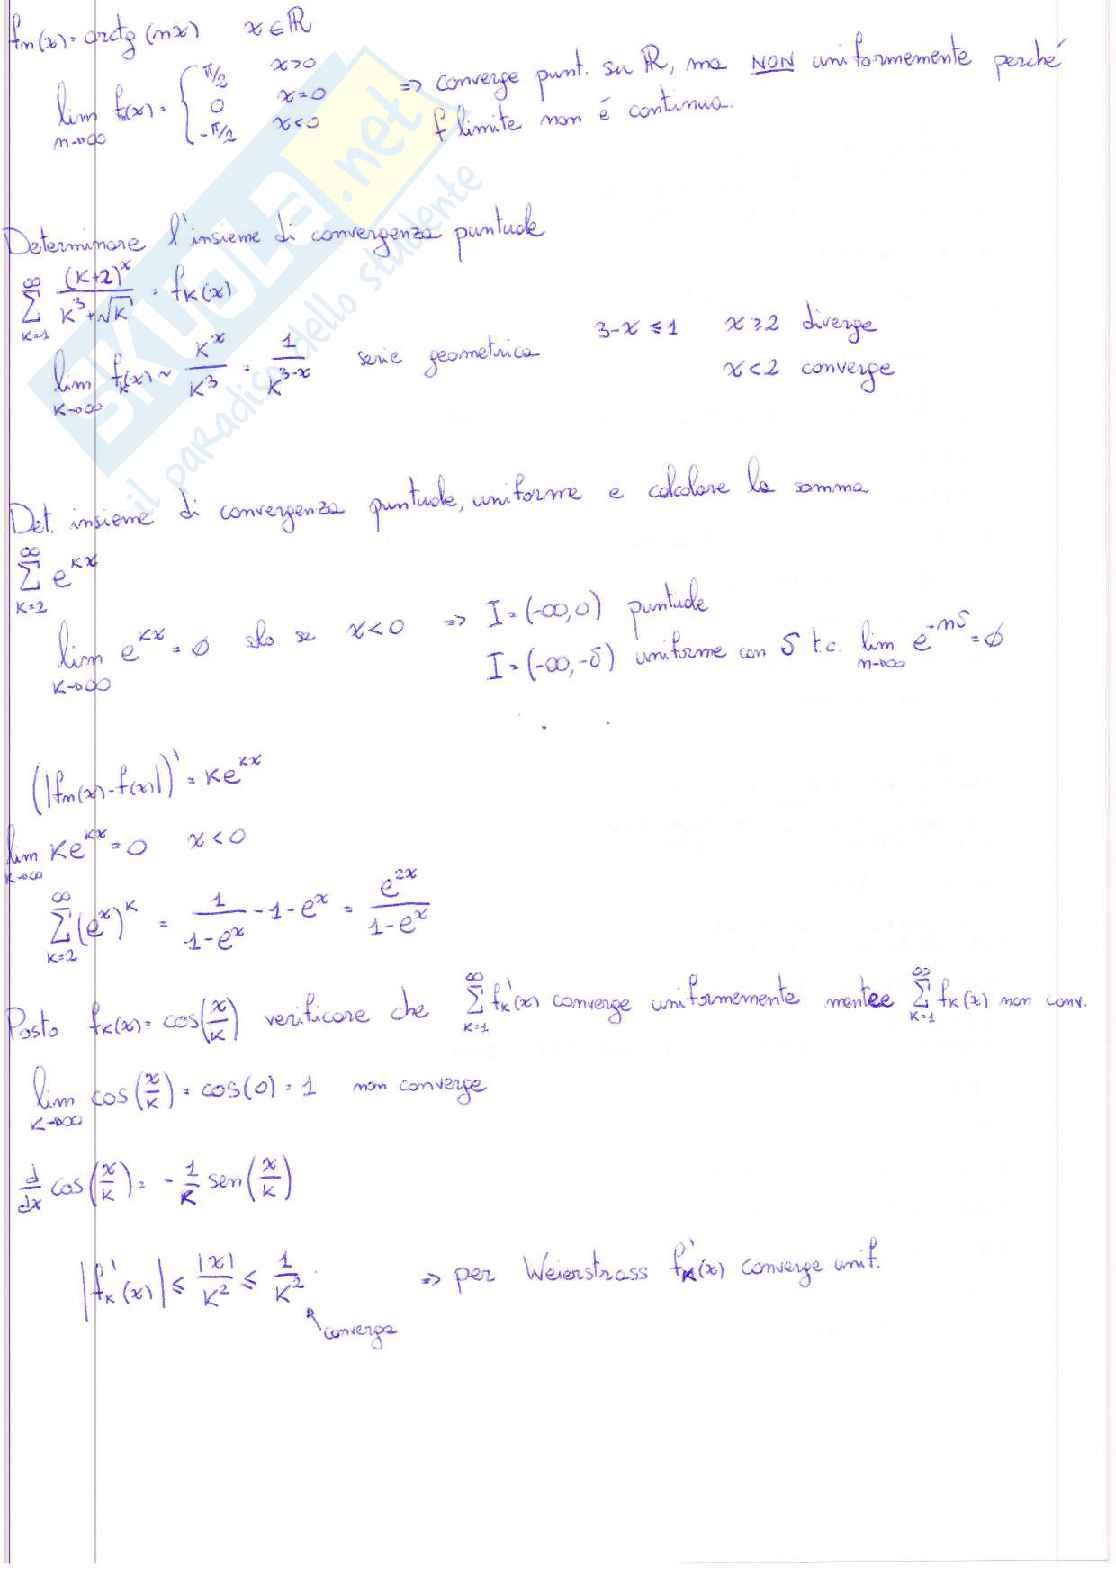 fn(x) = arctg(nx)   x ∈ ℝ
lim n→∞ fn(x) = { π/2  x>0 ; 0  x=0 ; -π/2  x<0   ⇒ converge punt. su ℝ, ma NON uniformemente perché
f limite non é continua.
Determinare l'insieme di convergenza puntuale
∑ k=1 ∞ (k+2)^x / (k^3+√k) = fk(x)
lim k→∞ fk(x) ~ k^x / k^3 = 1 / k^(3-x)   serie geometrica   3-x ≤ 1   x ≥ 2 diverge
x < 2 converge
Det. insieme di convergenza puntuale, uniforme e calcolare la somma
∑ k=2 ∞ e^(kx)
lim k→∞ e^(kx) = ∅ solo se x<0 ⇒ I = (-∞,0) puntuale
I = (-∞,-δ) uniforme con δ t.c. lim n→∞ e^(-nδ) = ∅
(|fn(x) - f(x)|)' = ke^(kx)
lim k→∞ ke^(kx) = 0   x<0
∑ k=2 ∞ (e^x)^k = 1/(1-e^x) - 1 - e^x = e^(2x)/(1-e^x)
Posto fk(x) = cos(x/k) verificare che ∑ k=1 ∞ fk'(x) converge uniformemente mentre ∑ k=1 ∞ fk(x) non conv.
lim k→∞ cos(x/k) = cos(0) = 1   non converge
d/dx cos(x/k) = - 1/k sen(x/k)
|fk'(x)| ≤ |x|/k^2 ≤ 1/k^2   ⇒ per Weierstrass fk'(x) converge unif.
converge
SKUOLA.net
il paradiso dello studente